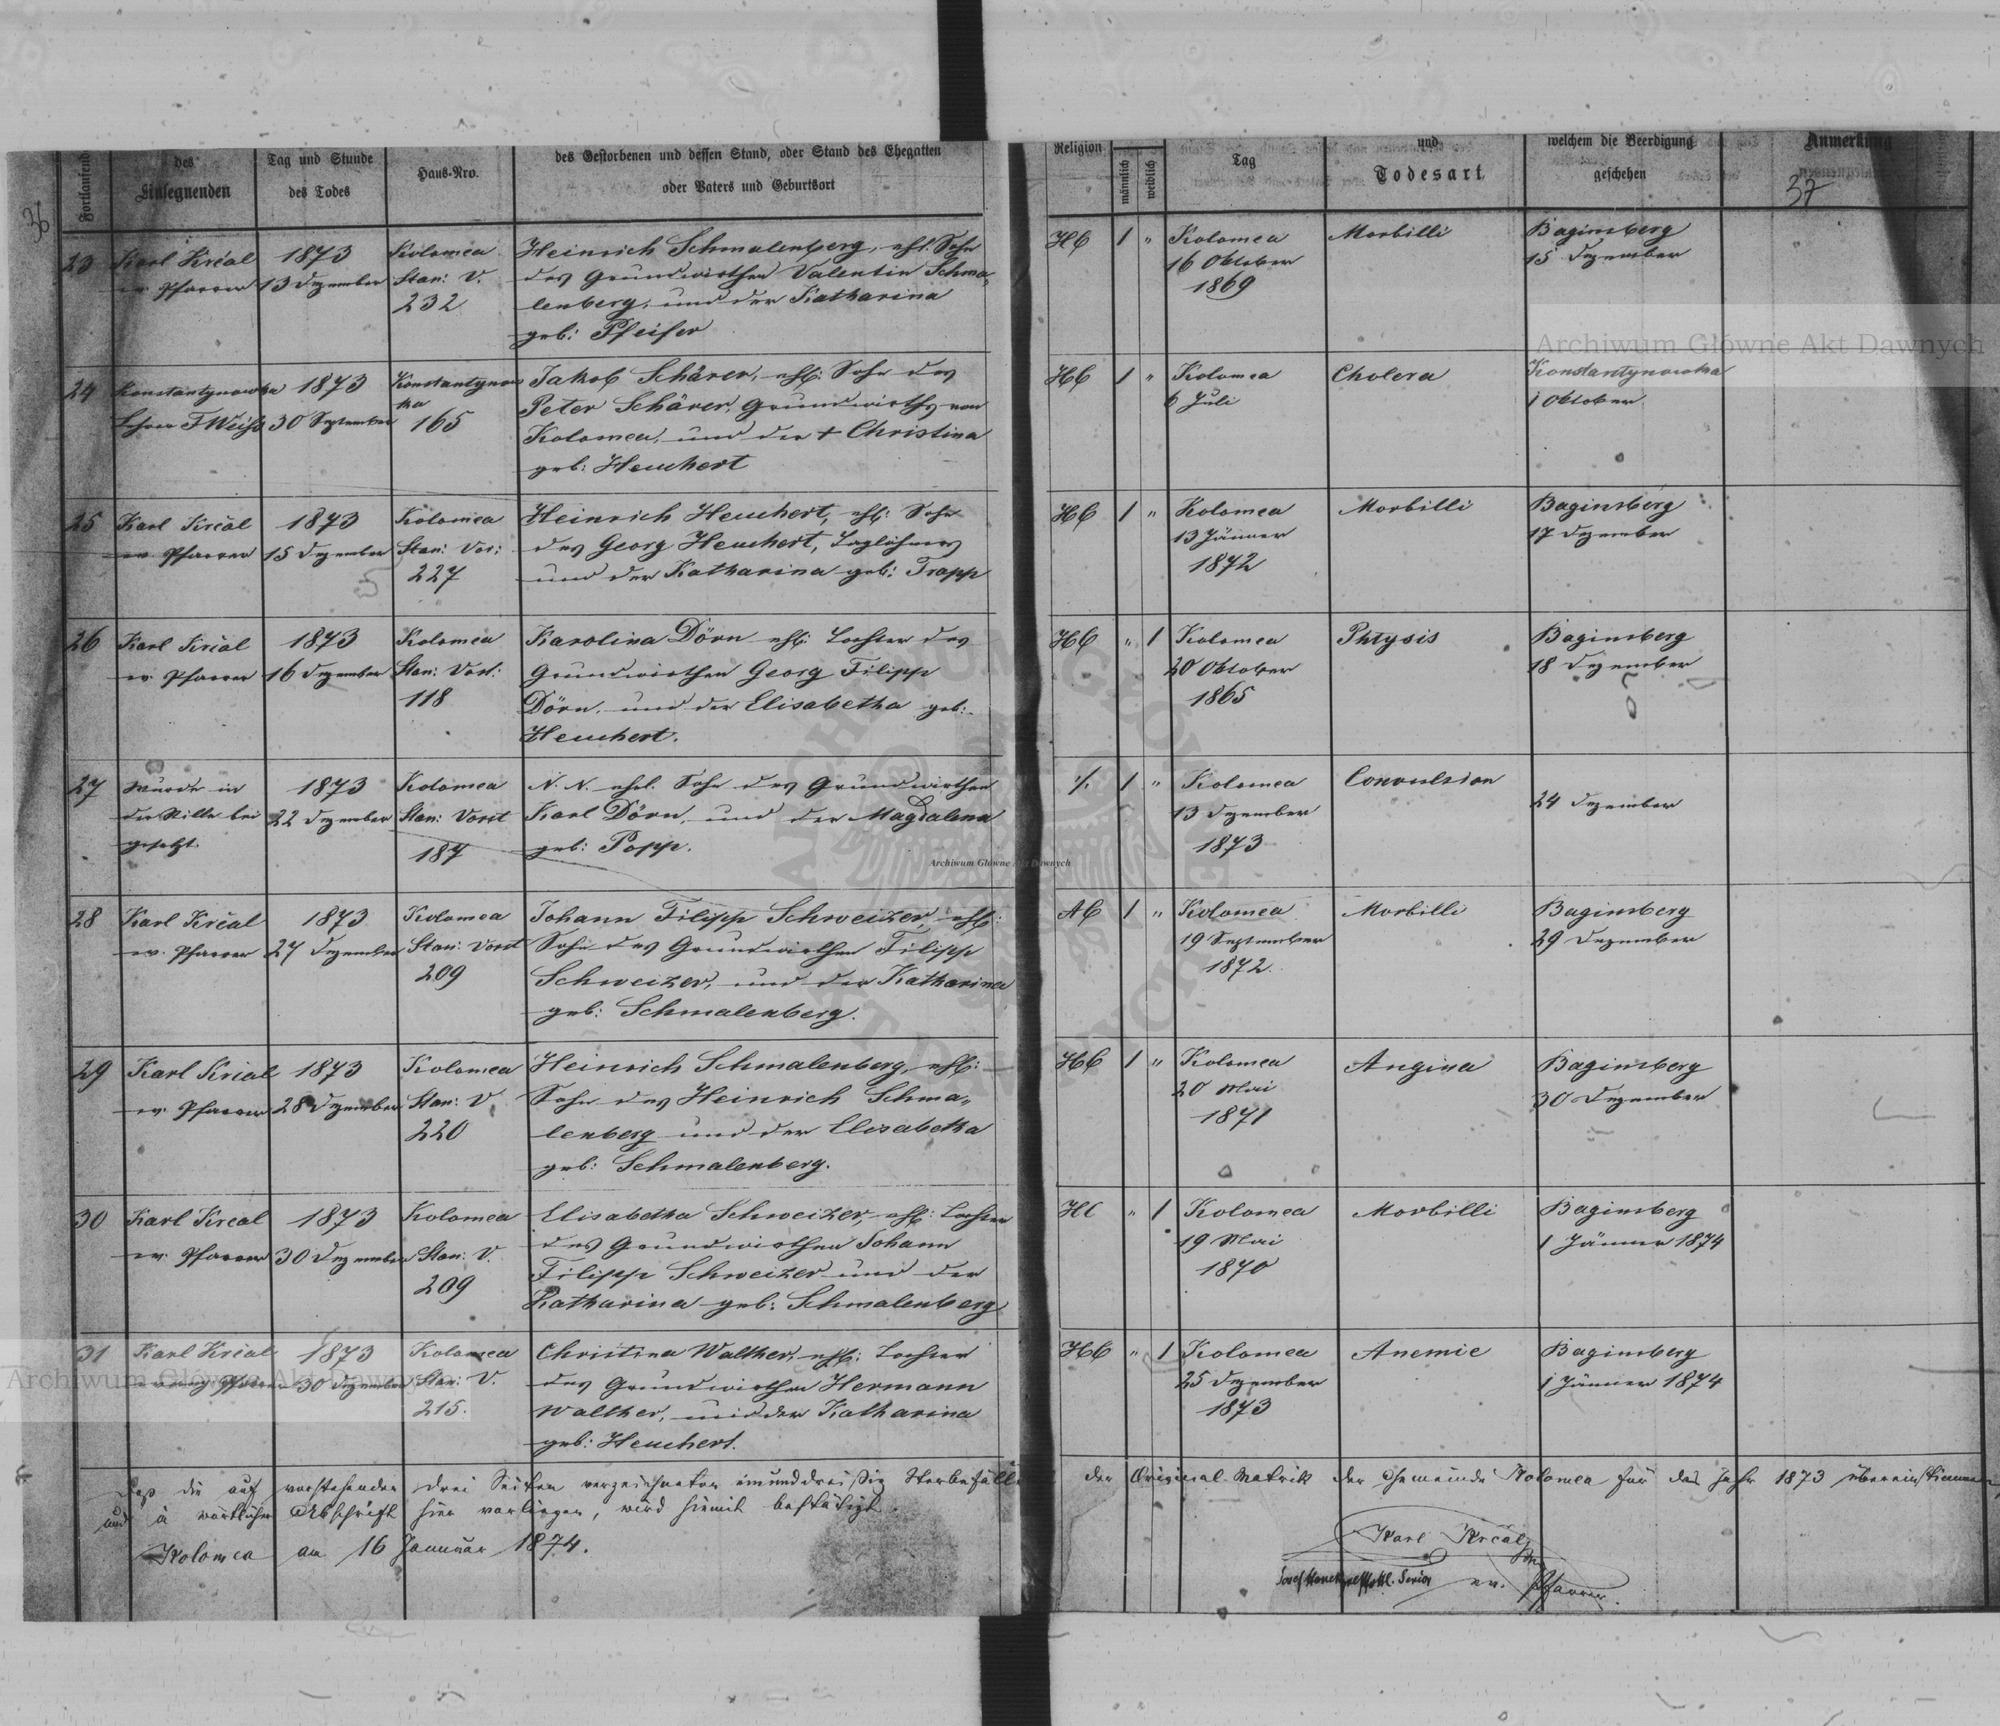 Fortlaufend
des
Einsegnenden
Tag und Stunde
des Todes
Haus-Nro.
des Gestorbenen und dessen Stand, oder Stand des Ehegatten
oder Vaters und Geburtsort
Religion
männlich
weiblich
Tag
und
Todesart
welchem die Beerdigung
geschehen
Anmerkung
36
37
23
Karl Krčal
ev. Pfarrer
1873
13 Dezember
Kolomea
Stan: V.
232
Heinrich Schmalenberg, ehl. Sohn
des Grundwirthen Valentin Schma-
lenberg, und der Katharina
geb: Pfeifer
HC
1
"
Kolomea
16 Oktober
1869
Morbilli
Baginsberg
15 Dezember
24
Konstantynowka
Lehrer F Weiss
1873
30 September
Konstantynow
ka
165
Jakob Schärer, ehl: Sohn des
Peter Schärer, Grundwirths von
Kolomea, und der + Christina
geb: Heuchert
HC
1
"
Kolomea
6 Juli
Cholera
Konstantynowka
1 Oktober
25
Karl Krčal
ev. Pfarrer
1873
15 Dezember
Kolomea
Stan: Vor:
227
Heinrich Heuchert, ehl: Sohn
des Georg Heuchert, Taglöhners
und der Katharina geb: Trapp
HC
1
"
Kolomea
13 Jänner
1872
Morbilli
Baginsberg
17 Dezember
26
Karl Krčal
ev. Pfarrer
1873
16 Dezember
Kolomea
Stan: Vorst:
118
Karolina Dörn ehl: Tochter des
Grundwirthen Georg Filipp
Dörn, und der Elisabetha geb:
Heuchert.
HC
"
1
Kolomea
20 Oktober
1865
Phtysis
Baginsberg
18 Dezember
27
Wurde in
der Stille bei
gesetzt.
1873
22 Dezember
Kolomea
Stan: Vorst
187
N. N. ehel. Sohn des Grundwirthen
Karl Dörn, und der Magdalena
geb: Popp.
1
"
Kolomea
13 Dezember
1873
Convulsion
24 Dezember
28
Karl Krčal
ev. Pfarrer
1873
27 Dezember
Kolomea
Stan: Vorst
209
Johann Filipp Schweizer, ehl:
Sohn des Grundwirthen Filipp
Schweizer, und der Katharina
geb: Schmalenberg.
AC
1
"
Kolomea
19 September
1872.
Morbilli
Baginsberg
29 Dezember
29
Karl Krčal
ev. Pfarrer
1873
28 Dezember
Kolomea
Stan: V
220
Heinrich Schmalenberg, ehl:
Sohn des Heinrich Schma-
lenberg und der Elisabetha
geb: Schmalenberg.
HC
1
"
Kolomea
20 Mai
1871
Angina
Baginsberg
30 Dezember
30
Karl Krcal
ev. Pfarrer
1873
30 Dezember
Kolomea
Stan: V.
209
Elisabetha Schweizer, ehl: Tochter
des Grundwirthen Johann
Filipp Schweizer und der
Katharina geb: Schmalenberg
HC
"
1
Kolomea
19 Mai
1870
Morbilli
Baginsberg
1 Jänner 1874
31
Karl Krčal
evang. Pfarrer
1873
30 Dezember
Kolomea
Stan: V.
215.
Christina Walther, ehl: Tochter
des Grundwirthen Hermann
Walther, und der Katharina
geb: Heuchert.
HC
"
1
Kolomea
25 Dezember
1873
Anemie
Baginsberg
1 Jänner 1874
Daß die auf vorstehender drei Seiten verzeichneten einunddreißig Sterbefälle der Original-Matrik der Gemeinde Kolomea für das Jahr 1873 übereinstimmen,
und in wörtlicher Abschrift hier vorliegen, wird hiemit bestätigt.
Kolomea am 16 Januar 1874.
Karl Krčal
ev. Pfarrer.
Archiwum Główne Akt Dawnych
Archiwum Główne Akt Dawnych
Archiwum Główne Akt Dawnych